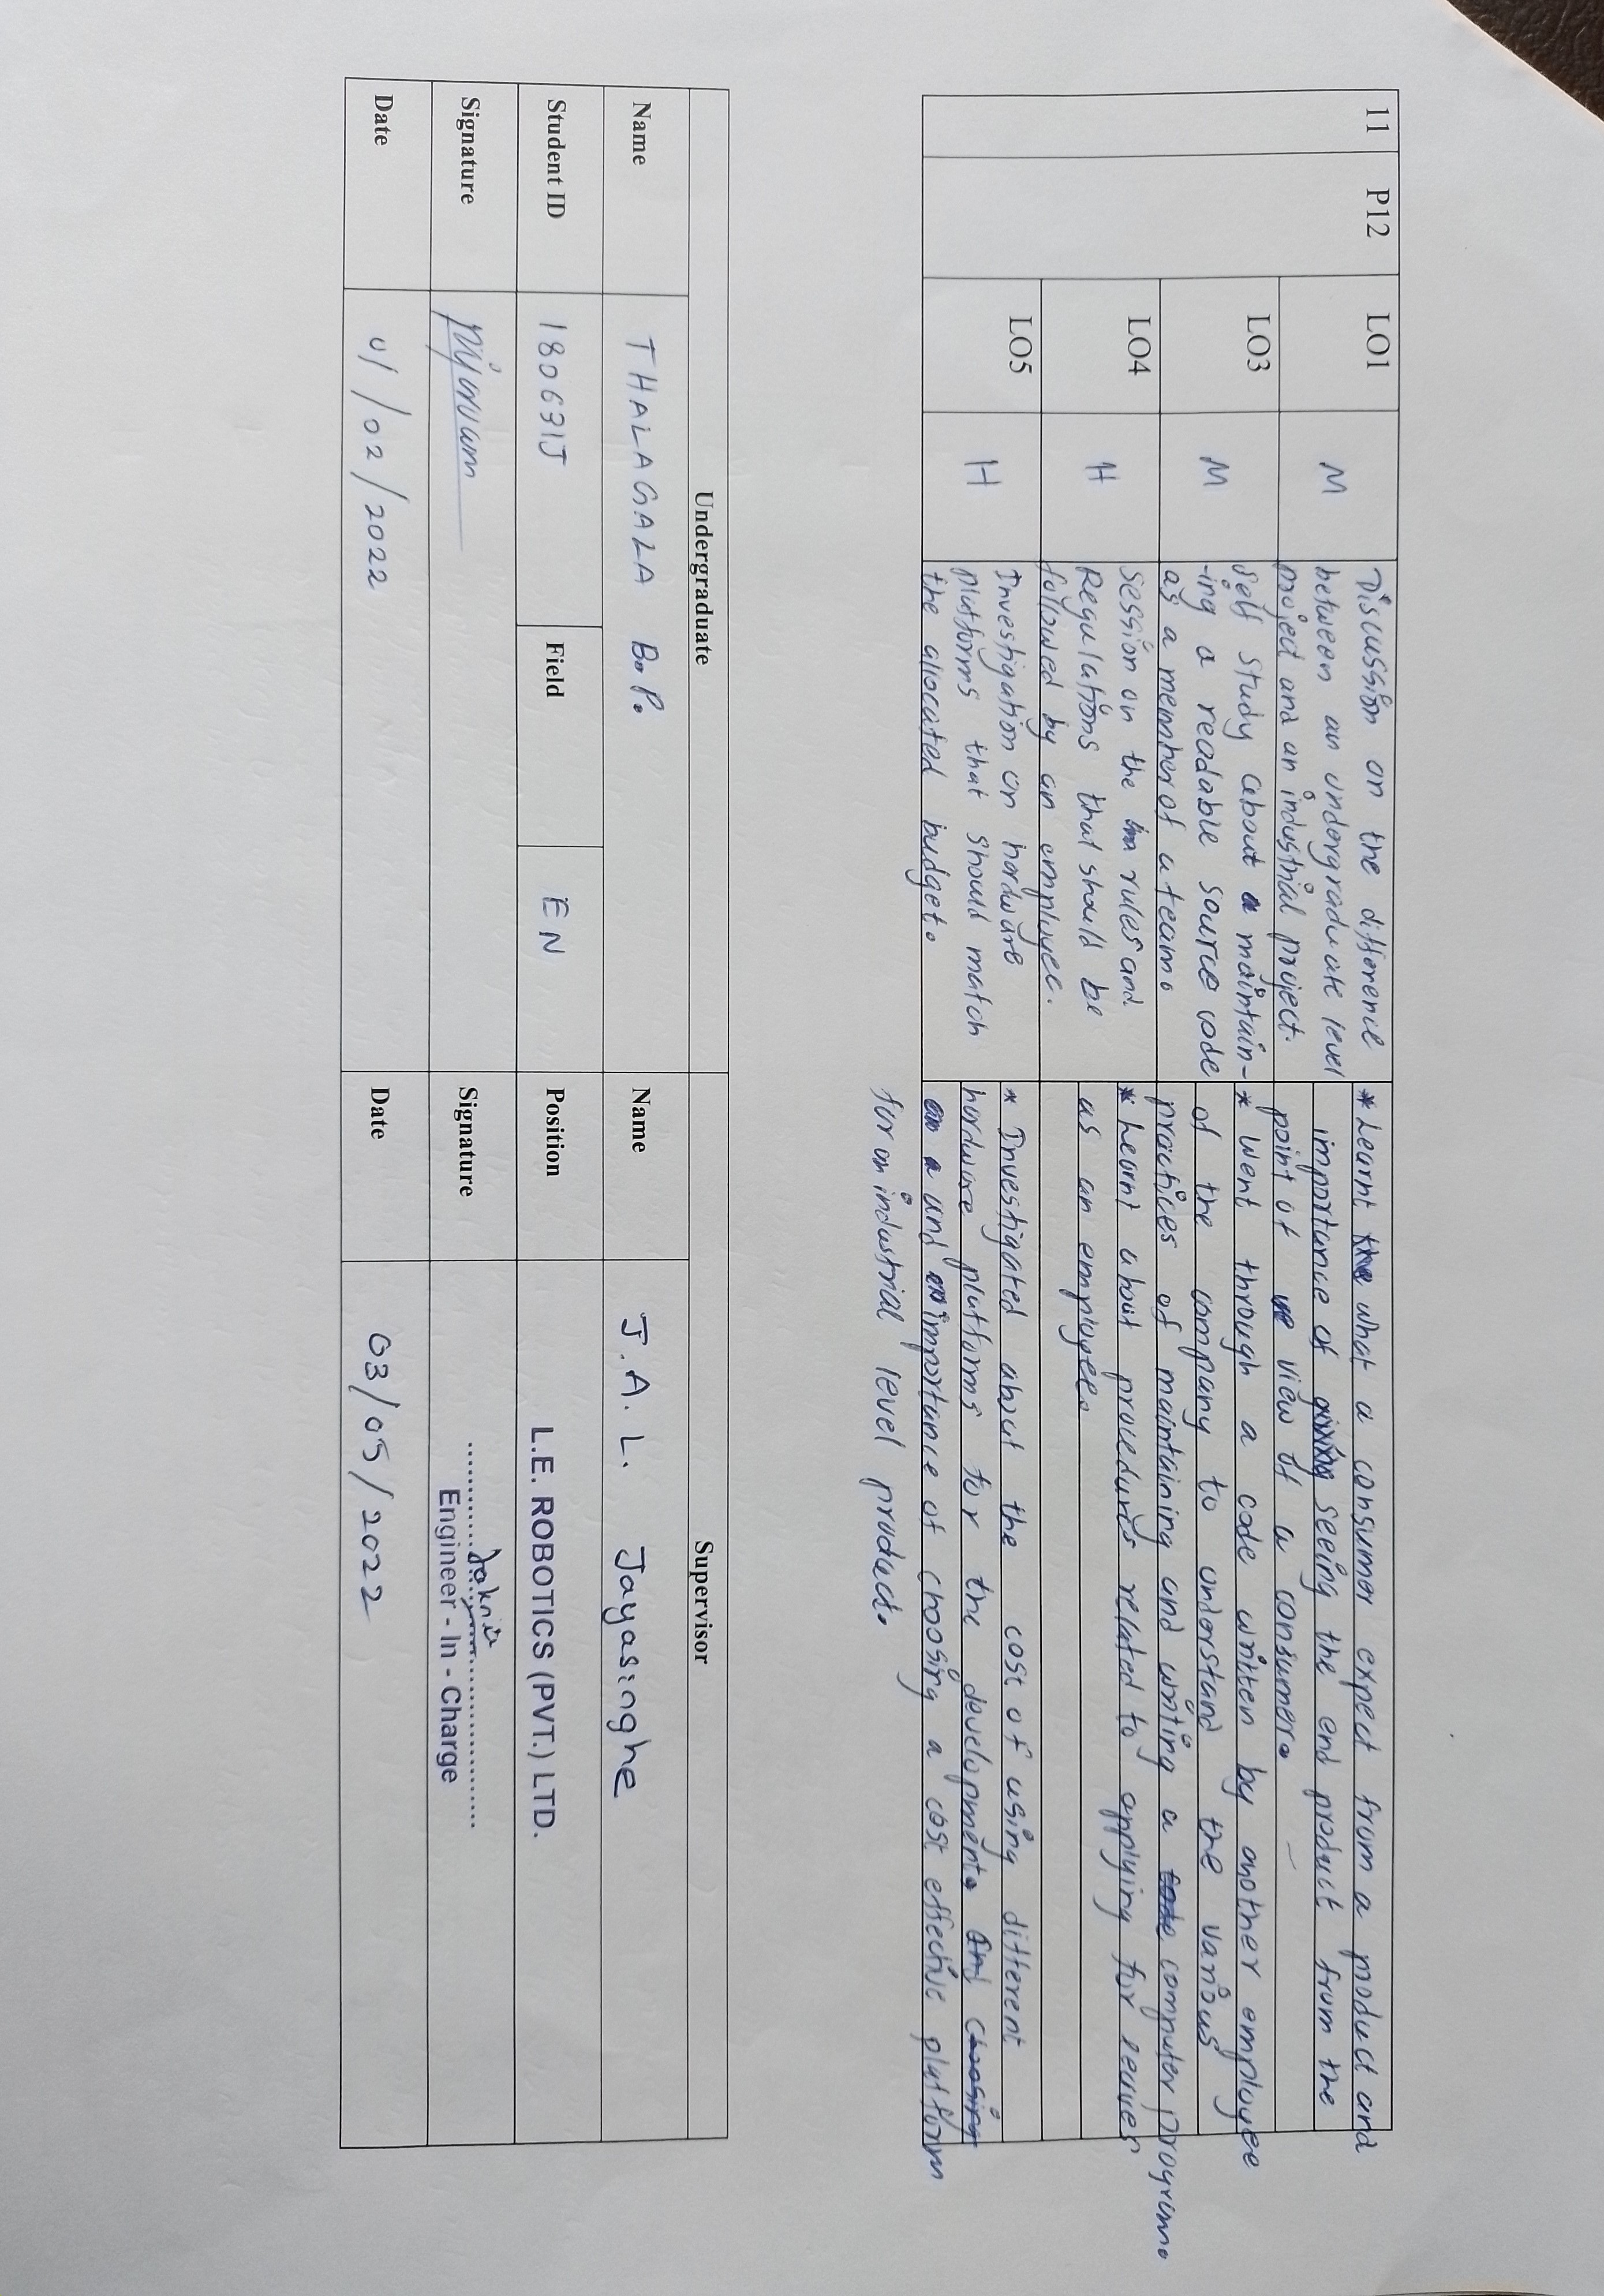 11 P12 LO1 M
Discussion on the difference
between an undergraduate level
project and an industrial project.
* Learnt what a consumer expect from a product and
importance of seeing the end product from the
point of view of a consumer.
LO3 M
Self study about maintain-
-ing a readable source code
as a member of a team.
* Went through a code written by another employee
of the company to understand the various
practices of maintaining and writing a computer program.
LO4 H
Session on the rules and
Regulations that should be
followed by an employee.
* Learnt about procedures related to applying for leaves
as an employee.
LO5 H
Investigation on hardware
platforms that should match
the allocated budget.
* Investigated about the cost of using different
hardware platforms for the development. and choosing
and importance of choosing a cost effective platform
for an industrial level product.
Undergraduate Supervisor
Name THALAGALA B.P. Name J.A.L. Jayasinghe
Student ID 180631J Field EN Position L.E. ROBOTICS (PVT.) LTD.
Signature Signature
Engineer - In - Charge
Date 01/02/2022 Date 03/05/2022